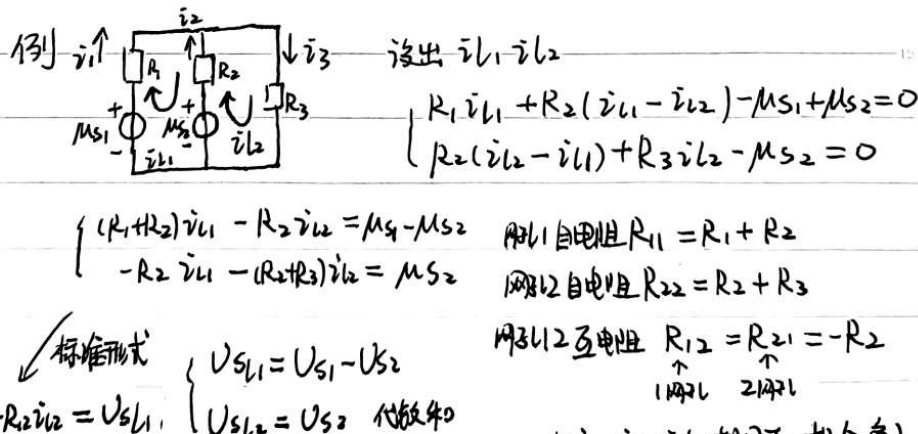 例 i₁ i₂ i₃ 设出 iL1 iL2
R₁ R₂ R₃
us1 us2 iL1 iL2
R₁iL1+R₂(iL1-iL2)-us1+us2=0
R₂(iL2-iL1)+R₃iL2-us2=0
(R₁+R₂)iL1-R₂iL2=us1-us2
-R₂iL1-(R₂+R₃)iL2=us2
网孔1自电阻R₁₁=R₁+R₂
网孔2自电阻R₂₂=R₂+R₃
网孔12互电阻 R₁₂=R₂₁=-R₂
1网孔 2网孔
标准形式
R₁₂iL2=UsL1
UsL1=Us1-Us2
UsL2=Us2 代数和